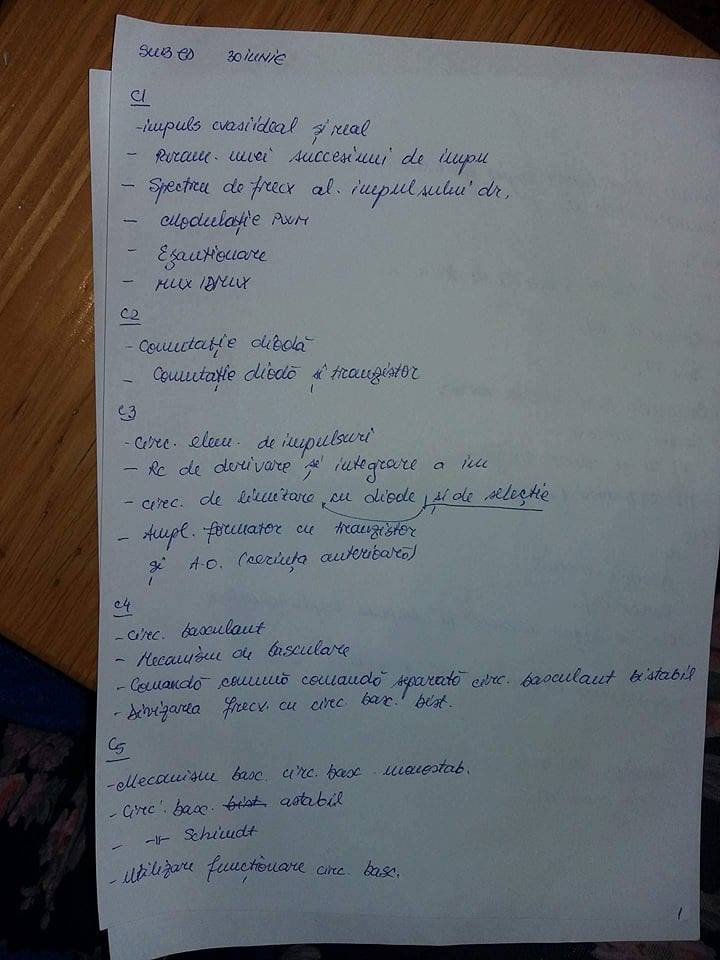 SUB ED 30 IUNIE
C1
- impuls cvasiideal și real
- Param. unei succesiuni de impu
- Spectru de frecv al. impulsului dr.
- Modulație PWM
- Eșantionare
- MUX / DMUX
C2
- Comutație diodă
- Comutație diodă și tranzistor
C3
- Circ. elem. de impulsuri
- RC de derivare și integrare a im
- circ. de limitare cu diode și de selecție
- Ampl. formator cu tranzistor
și A.O. (cerința anterioară)
C4
- Circ. basculant
- Mecanism de basculare
- Comandă comună comandă separată circ. basculant bistabil
- Divizarea frecv. cu circ. bax. bist.
C5
- Mecanism basc. circ. basc monostab.
- Circ. basc. bist. astabil
- -11- Schimdt
- Utilizare funcționare circ. basc.
1